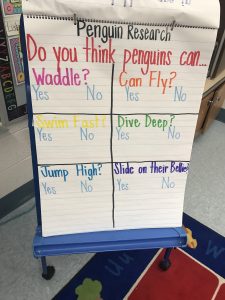 Penguin Research
Do you think penguins can...
Waddle? Can Fly?
Yes No Yes No
Swim Fast? Dive Deep?
Yes No Yes No
Jump High? Slide on their Bellies
Yes No Yes No